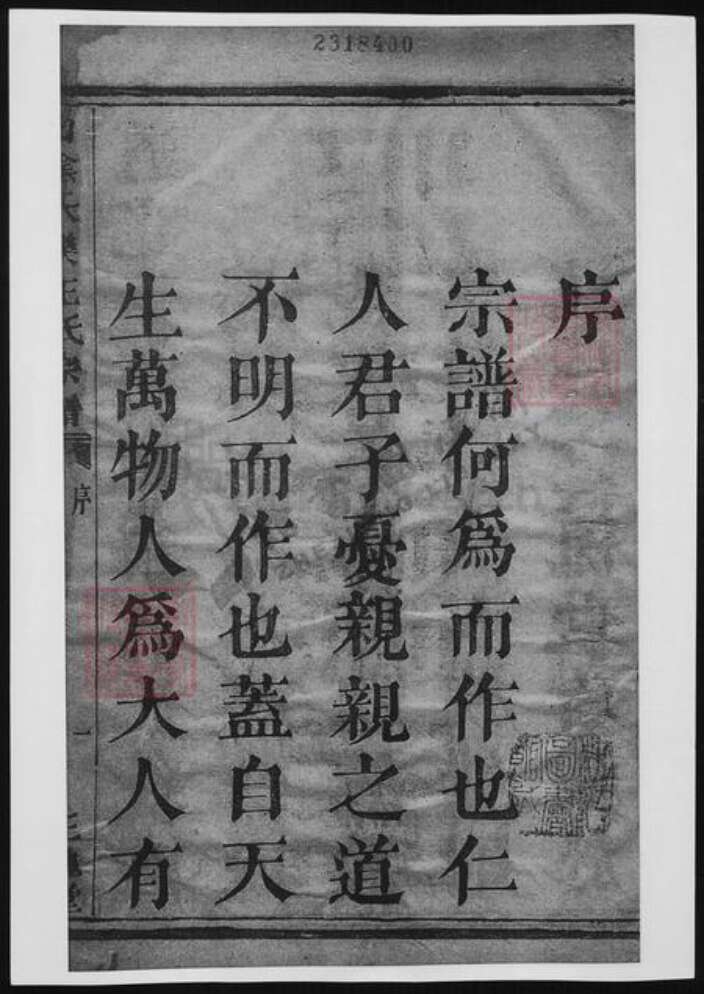 2318400
序
宗譜何爲而作也仁
人君子憂親親之道
不明而作也蓋自天
生萬物人爲大人有
王氏宗譜
序
一